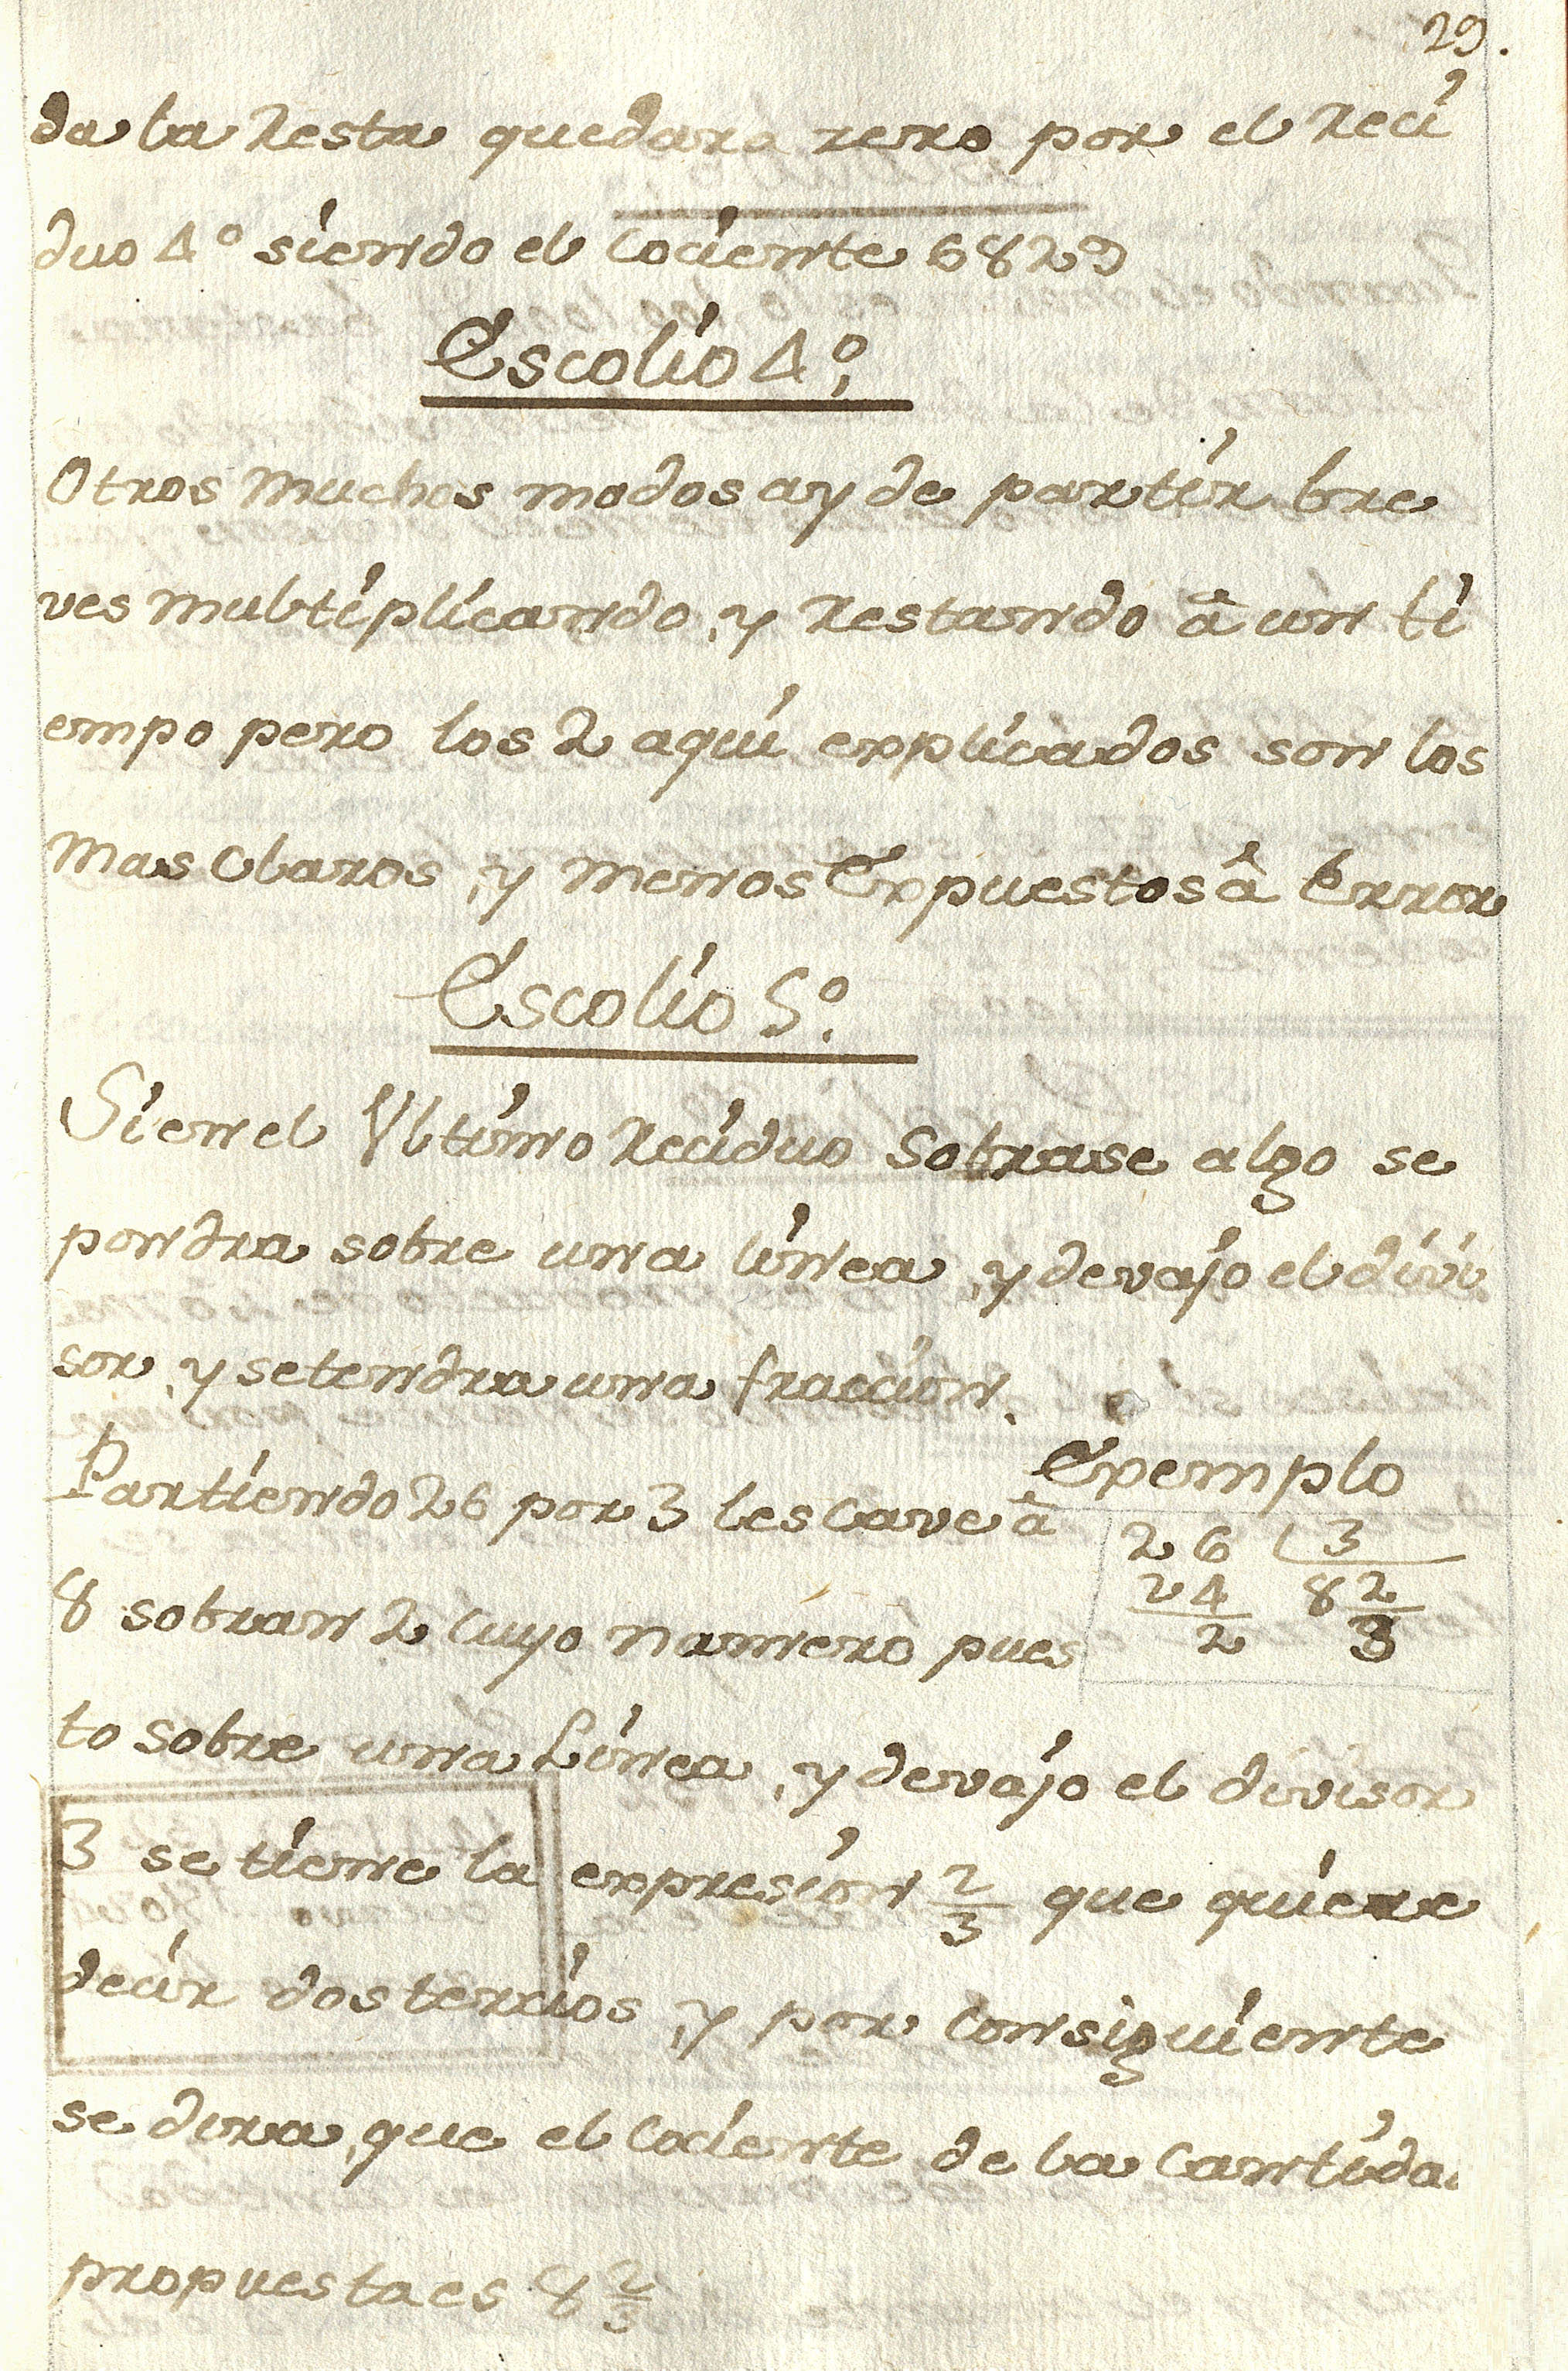 29.
da la Resta quedara zero por el Reci
duo 4º siendo el Cociente 6829
Escolio 4º,
Otros muchos modos ay de partir bre
ves multiplicando, y Restando â un ti
empo pero los 2 aqui explicados son los
mas claros, y menos Expuestos â Error
Escolio 5º.
Si en el Ultimo Reciduo sobrase algo se
pondra sobre una linea, y devajo el divi
sor, y se tendra una fraccion.
Exemplo
Partiendo 26 por 3 les cave â
26 3
24 8 2/3
2
8 sobran 2 cuyo numero pues
to sobre una Linea, y devajo el divisor
3 se tiene la expresion 2/3 que quiere
decir dos tercios, y por consiguiente
se dira, que el Cociente de la Cantida
propuesta es 8 2/3